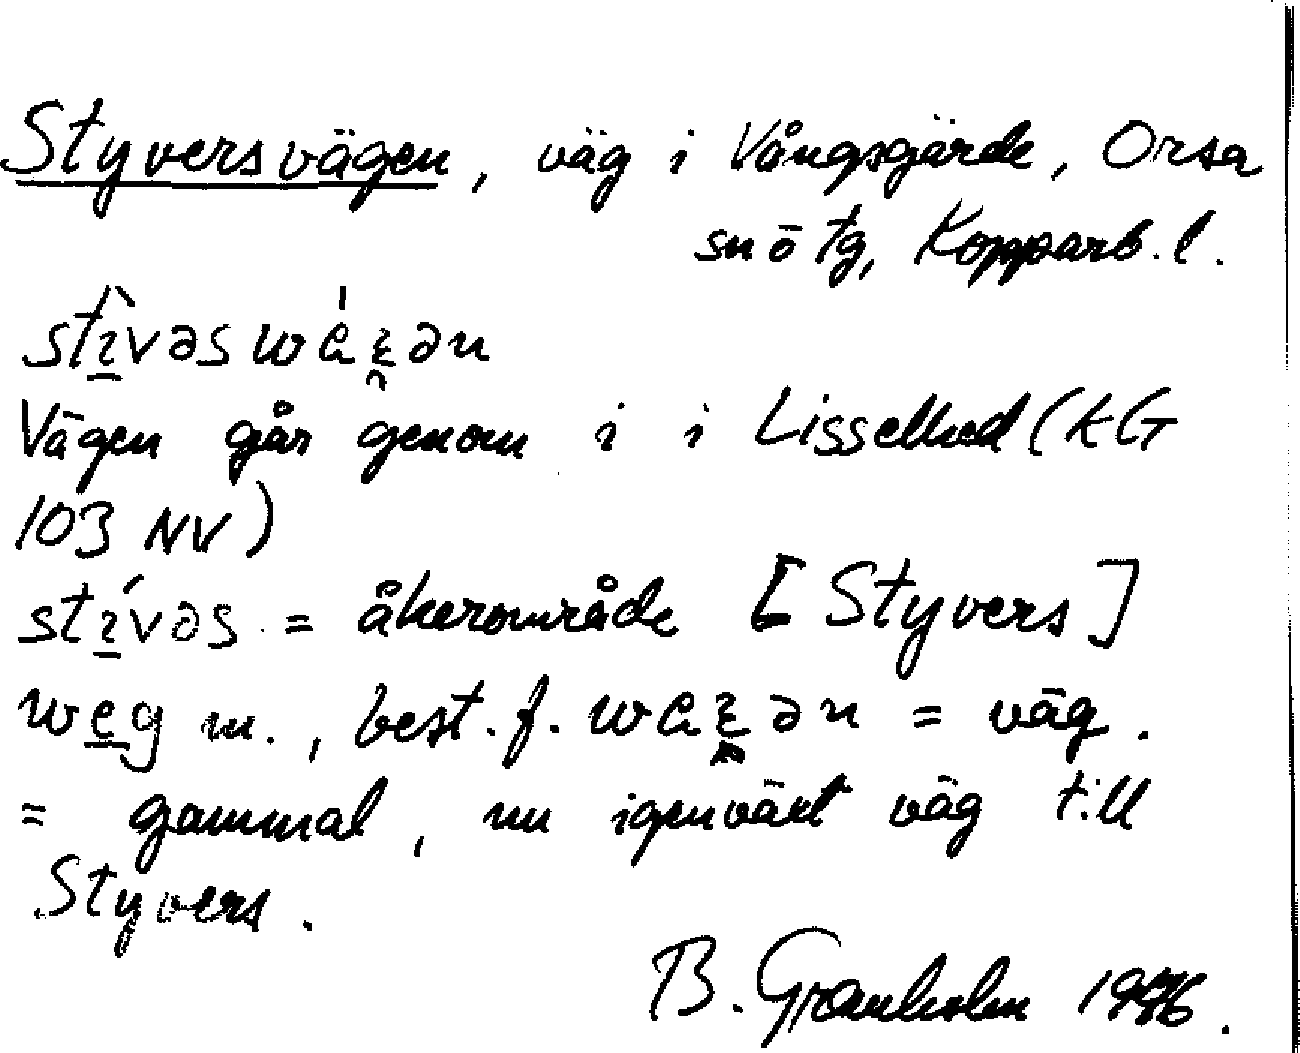 Styversvägen, väg i Vångsgärde, Orsa
sn ö tg, Kopparb. l.
Vägen går genom i i Lisselhed (KG
103 NV)
= åkerområde [Styvers]
weg m., best. f. = väg.
= gammal, nu igenväxt väg till
Styvers.
B. Granholm